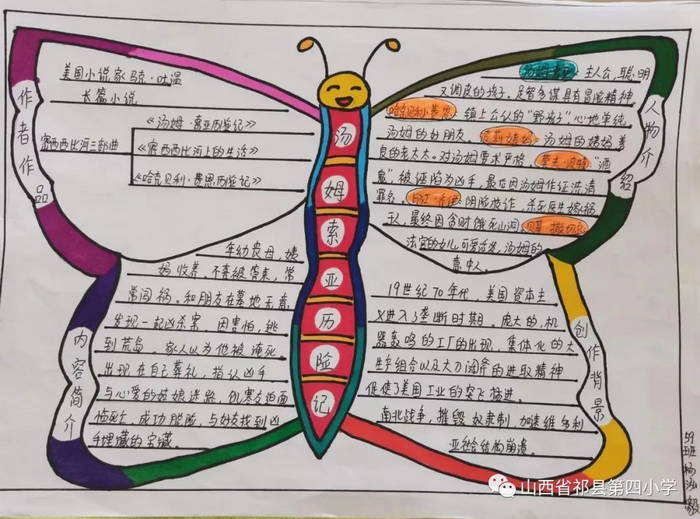 汤姆索亚历险记
作者作品
美国小说家马克·吐温
长篇小说
《汤姆·索亚历险记》
密西西比河三部曲
《密西西比河上的生活》
《哈克贝利·费恩历险记》
人物介绍
主人公,聪明
又调皮的孩子,足智多谋具有冒险精神
哈克贝利·费恩 镇上公认的“野孩子”心地单纯
汤姆的好朋友。 汤姆的姨妈善
良的老太太。对汤姆要求严格, “酒
鬼”,被诬陷为凶手,最后因汤姆作证洗清
罪名。 阴险狡诈,杀死医生嫁祸
于人,最终因贪财饿死山洞
法官的女儿,可爱活泼,汤姆的
意中人。
内容简介
年幼丧母,姨
妈收养,不喜被管束,常
常闯祸。和朋友在墓地无意
发现一起凶杀案,因害怕,逃
到荒岛,家人以为他被淹死
出现在自己葬礼,指认凶手
与心爱的姑娘迷路,饥寒交迫面
临死亡,成功脱险,与好友找到凶
手埋藏的宝藏。
创作背景
19世纪70年代,美国资本主
义进入了垄断时期,庞大的,机
器轰鸣的工厂的出现,集体化的大
生产组合以及大刀阔斧的进取精神
促使了美国工业的突飞猛进。
南北战争,摧毁奴隶制,加速维多利
亚社会结构崩溃。
山西省祁县第四小学